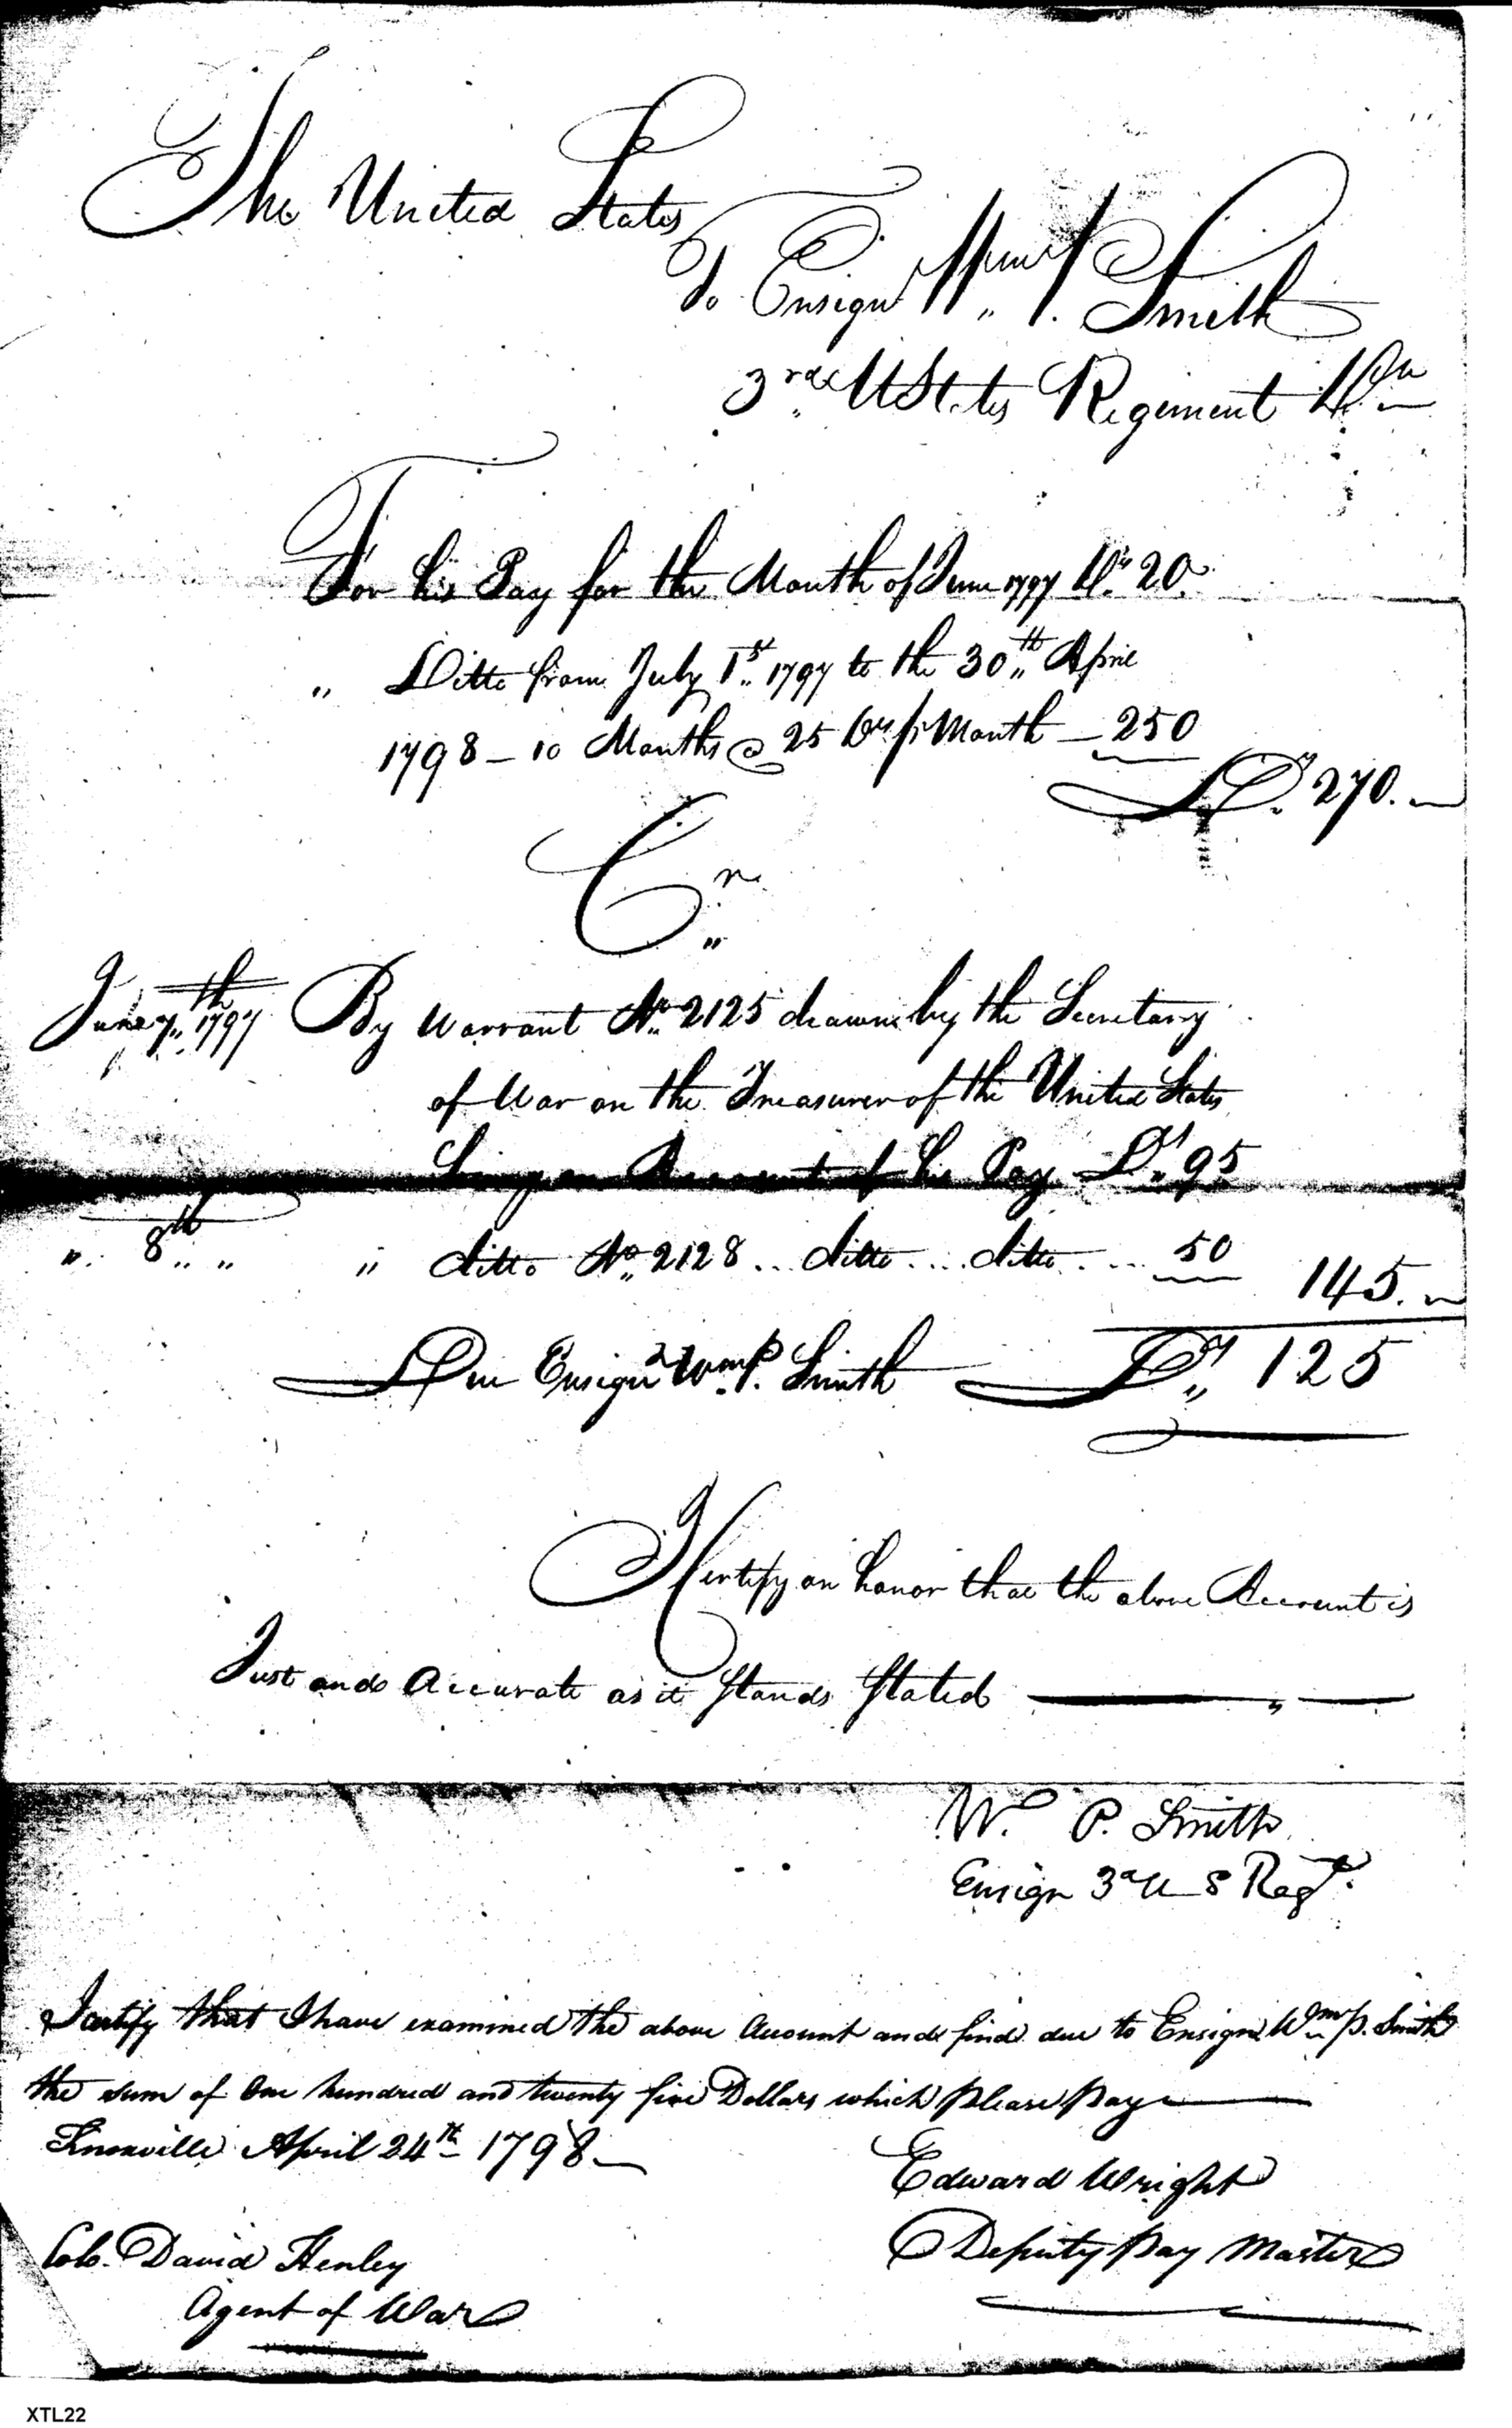 The United States
To Ensign Wm P. Smith
3rd UStates Regiment Dr
For his Pay for the Month of June 1797 Ds 20.
" Ditto from July 1st 1797 to the 30th April
1798 - 10 Months @ 25 Drs pr Month - 250
Ds 270.
Cr
June 7th 1797 By Warrant No 2125 drawn by the Secretary
of War on the Treasurer of the United States
being on Account of his Pay Ds 95
" 8th " " ditto No 2128 .. ditto ... ditto .... 50 145.
Due Ensign Wm P. Smith Ds 125
I Certify on honor that the above Account is
Just and Accurate as it Stands Stated
Wm P. Smith
Ensign 3d U S Regt.
I certify that I have examined the above Account and find due to Ensign Wm P. Smith
the sum of One hundred and twenty five Dollars which please pay
Knoxville April 24th 1798
Edward Wright
Deputy Pay Master
Colo. David Henley
Agent of War
XTL22